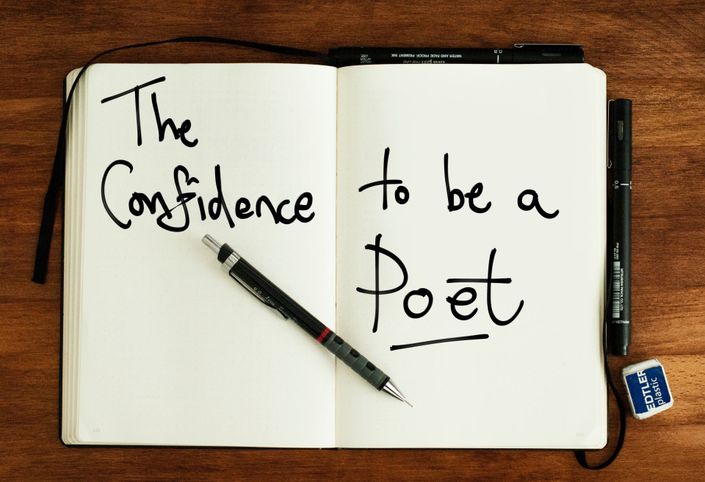 The
Confidence
to be a
Poet
WATER AND FADE PROOF, PIGMENT INK
EDTLER
plastic